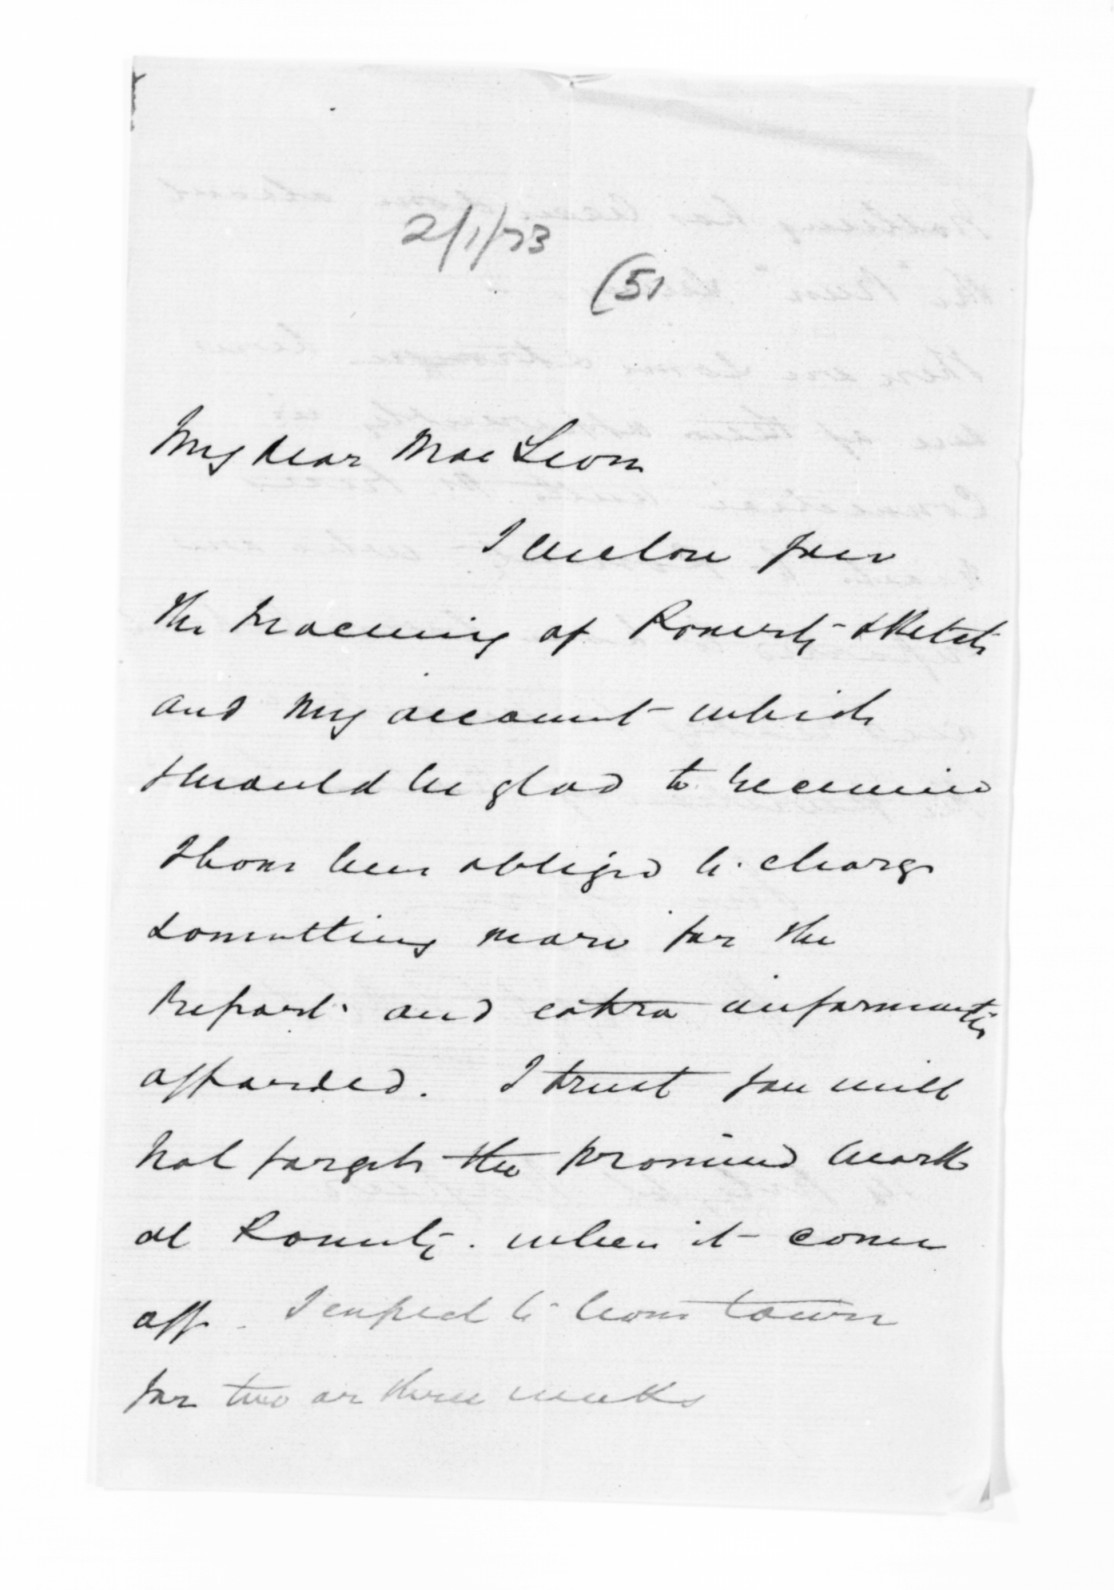 2/1/73
(51
My dear Mac Lean
I enclose you
the tracing of sketch
and my account which
should be glad to receive
I have been obliged to charge
something more for the
Report and extra information
afforded. I trust you will
not forget the promised work
at when it comes
off. I expect to leave town
for two or three weeks